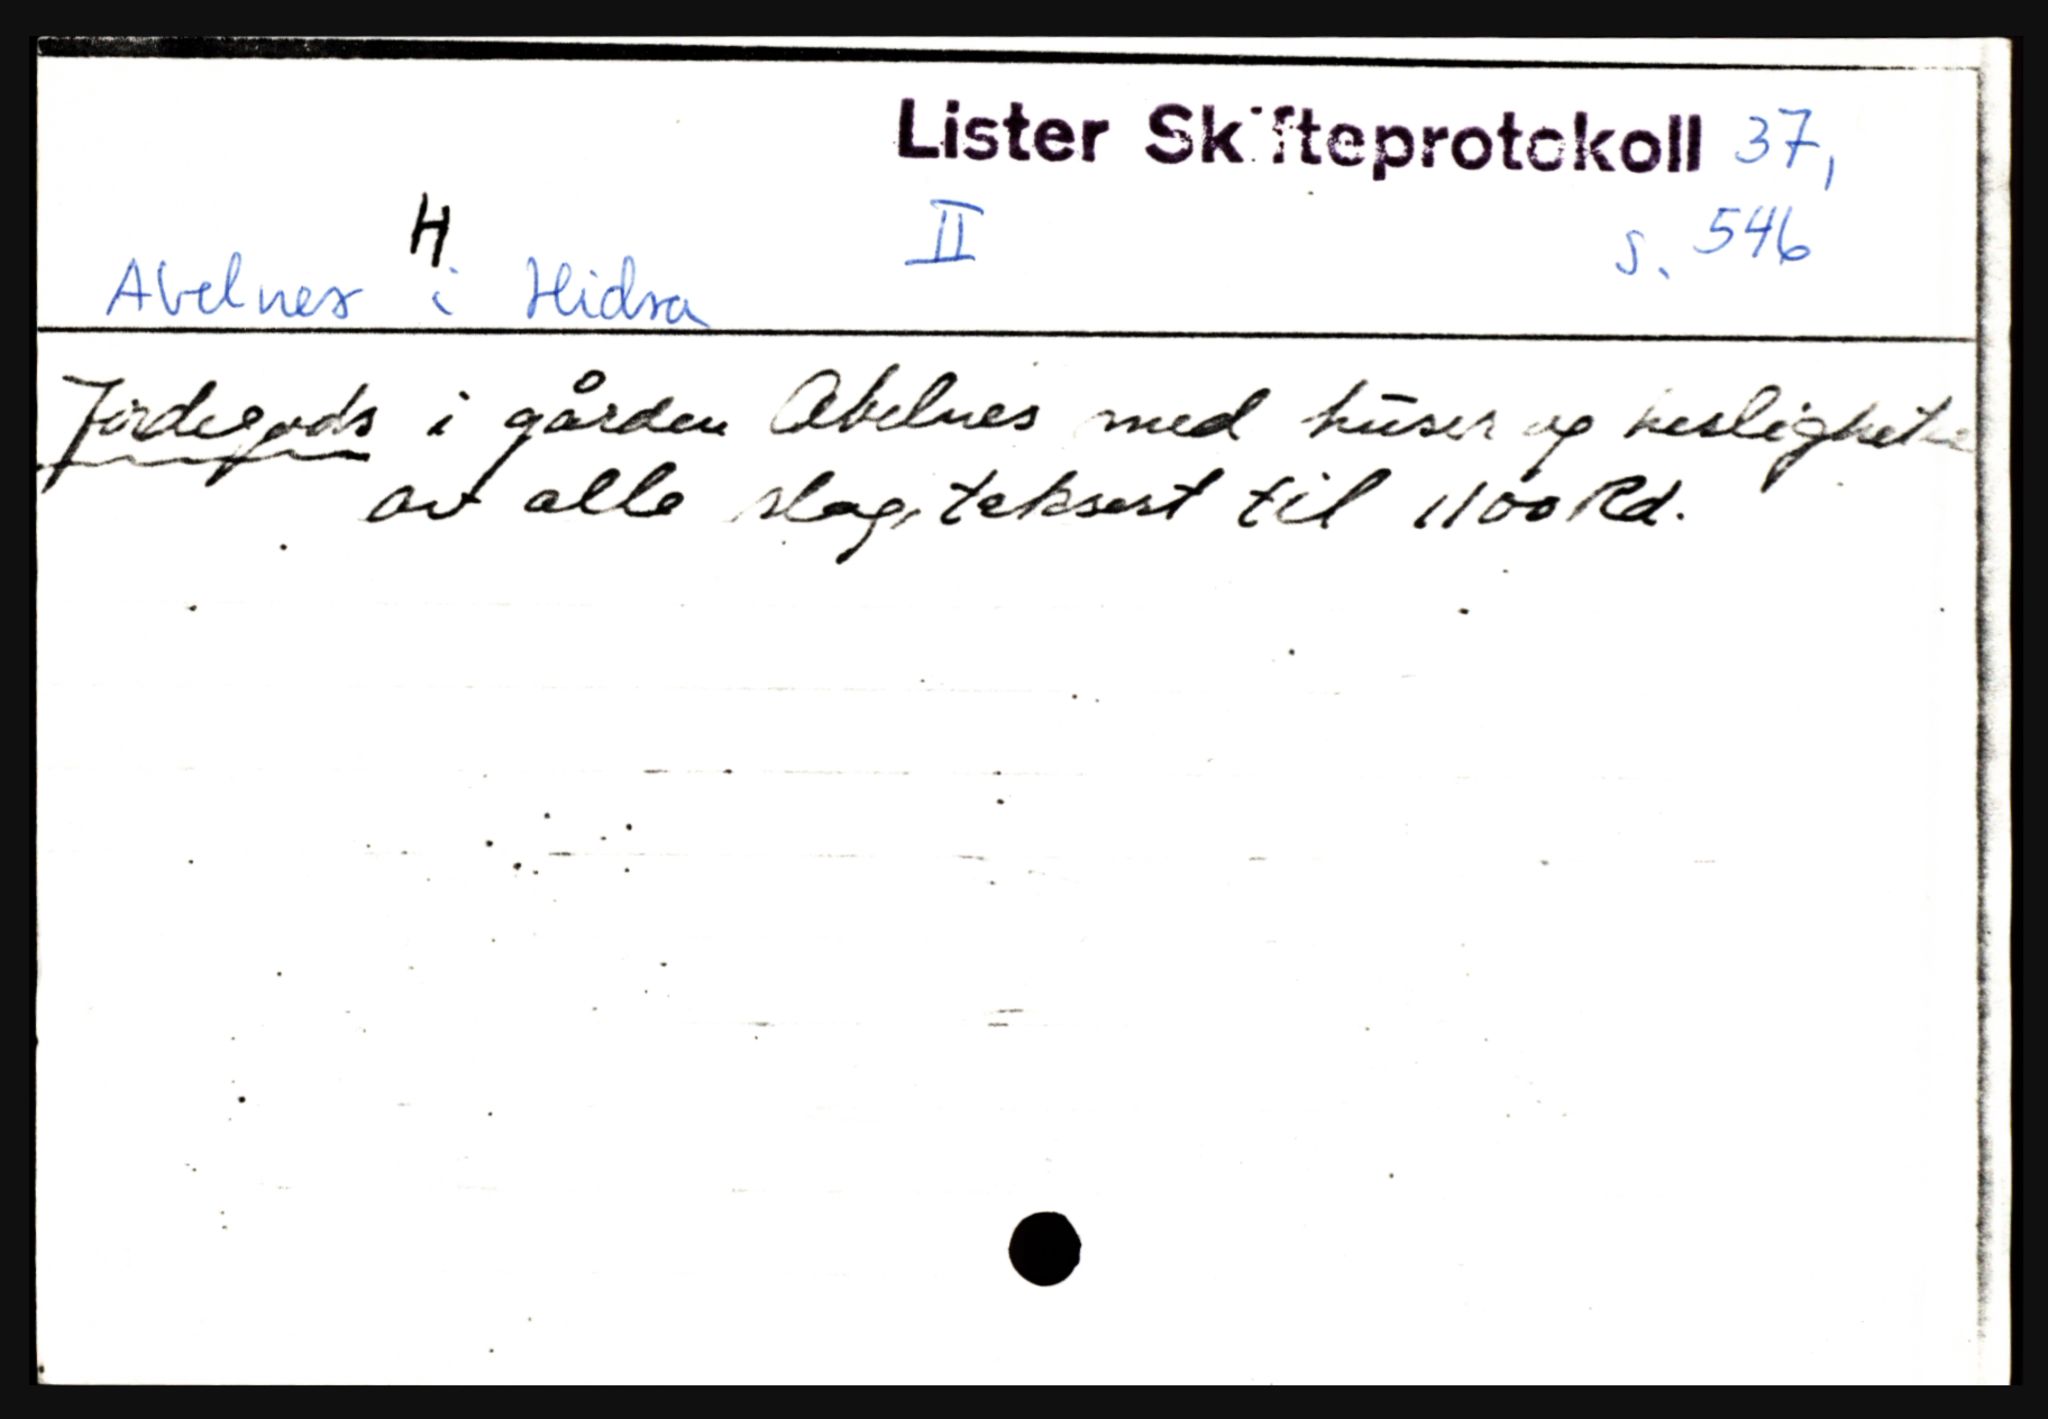 Lister Skifteprotokoll 37,
H II s. 546
Abelnes i Hidra
Jordegods i gården Abelnes med huser og herligheter
av alle slag, taksert til 1100 Rd.